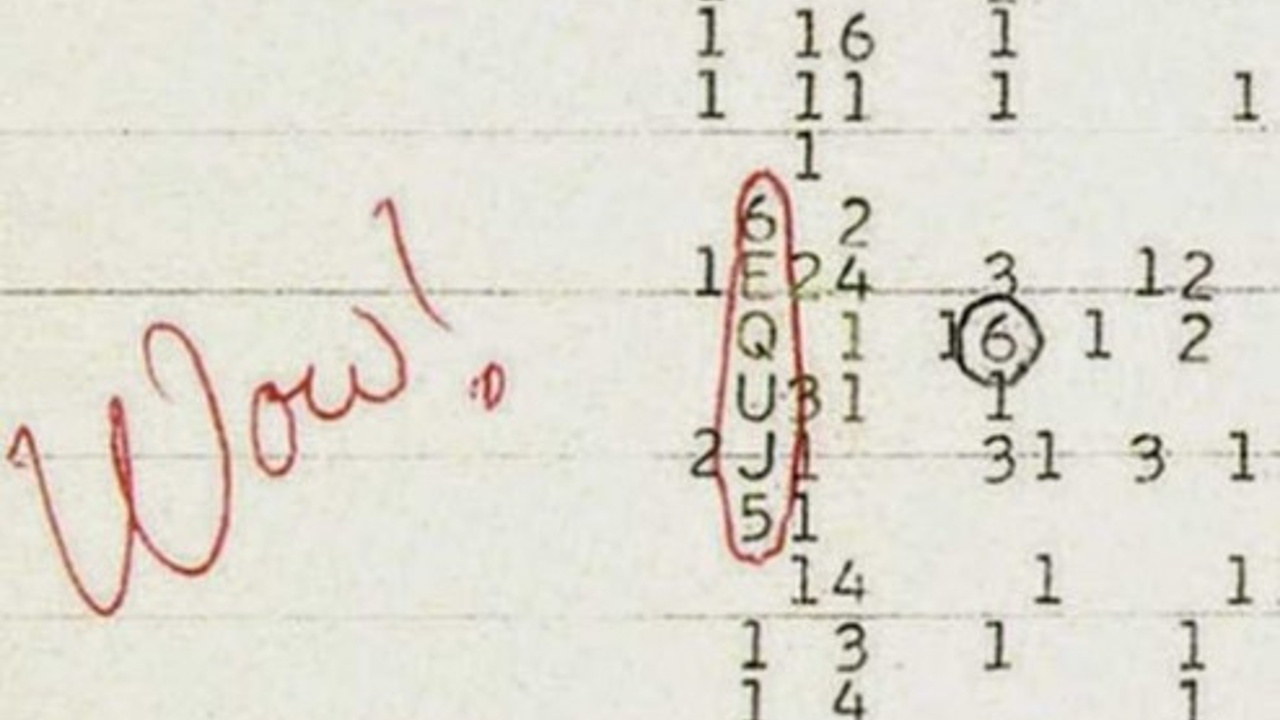 1 16 1
1 11 1 1
1
6 2
1 E 2 4 3 1 2
Q 1 1 6 1 2
U 3 1 1
2 J 1 3 1 3 1
5 1
1 4 1 1
1 3 1 1
1 4 1
Wow!